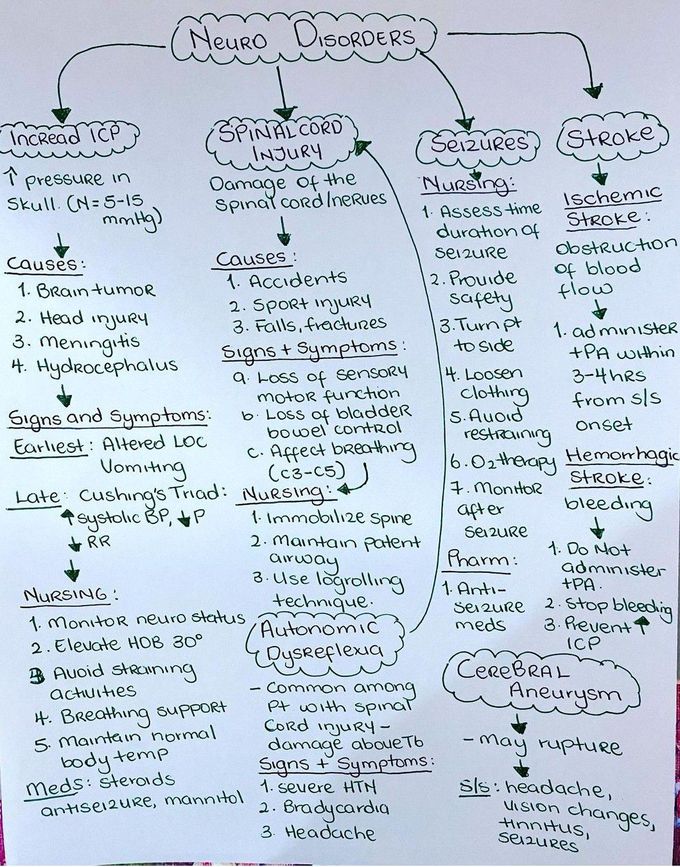 Neuro Disorders
Incread ICP
↑ pressure in
skull. (N=5-15
mmHg)
Causes:
1. Brain tumor
2. Head injury
3. Meningitis
4. Hydrocephalus
Signs and Symptoms:
Earliest: Altered LOC
Vomiting
Late: Cushing's Triad:
↑ systolic BP, ↓ P
↓ RR
Nursing:
1. Monitor neuro status
2. Elevate HOB 30°
3 Avoid straining
activities
4. Breathing support
5. Maintain normal
body temp
Meds: steroids
antiseizure, mannitol
Spinal cord
injury
Damage of the
spinal cord/nerves
Causes:
1. Accidents
2. Sport injury
3. Falls, fractures
Signs + Symptoms:
a. Loss of sensory
motor function
b. Loss of bladder
bowel control
c. Affect breathing
(C3-C5)
Nursing:
1. Immobilize spine
2. Maintain patent
airway
3. Use logrolling
technique.
Autonomic
Dysreflexia
- Common among
Pt with spinal
cord injury-
damage above T6
Signs + Symptoms:
1. severe HTN
2. Bradycardia
3. Headache
Seizures
Nursing:
1. Assess time
duration of
seizure
2. Provide
safety
3. Turn pt
to side
4. Loosen
clothing
5. Avoid
restraining
6. O2 therapy
7. Monitor
after
seizure
Pharm:
1. Anti-
seizure
meds
Stroke
Ischemic
Stroke:
obstruction
of blood
flow
1. administer
tPA within
3-4hrs
from s/s
onset
Hemorrhagic
Stroke:
bleeding
1. Do Not
administer
tPA.
2. Stop bleeding
3. Prevent ↑
ICP
Cerebral
Aneurysm
- may rupture
s/s: headache,
vision changes,
tinnitus,
seizures